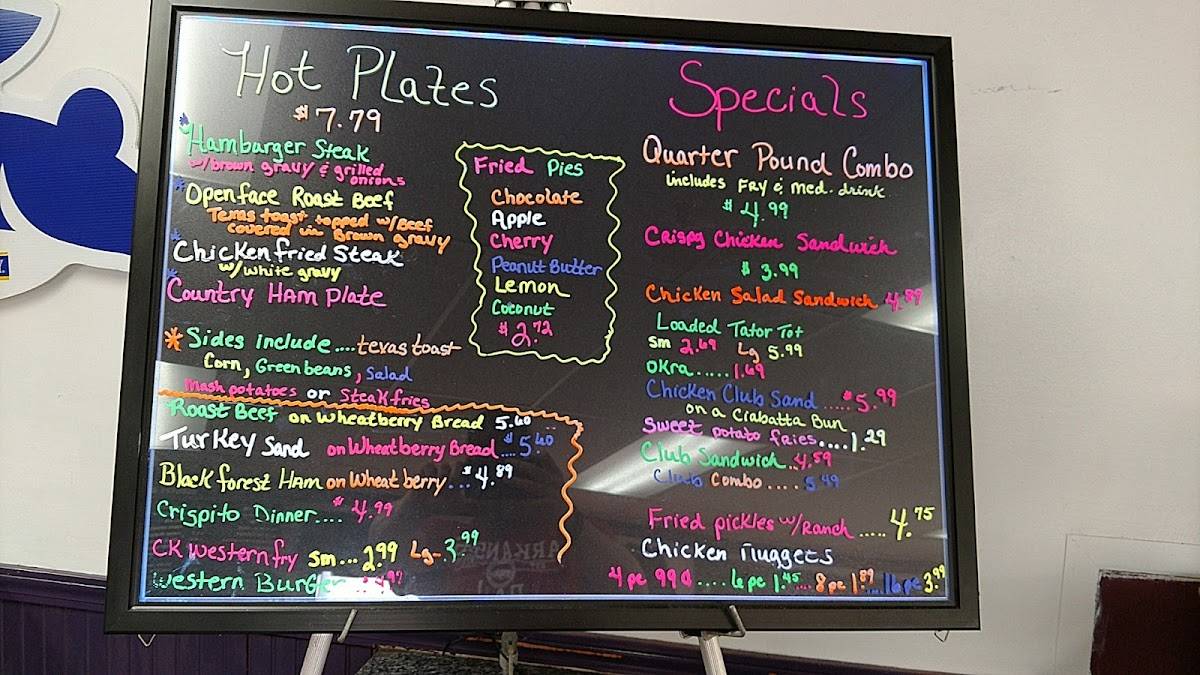 Hot Plates
$7.79
*Hamburger Steak
w/brown gravy & grilled
onions
*Openface Roast Beef
Texas toast topped w/Beef
covered in Brown gravy
*Chicken fried Steak
w/white gravy
*Country Ham Plate
*Sides include....texas toast
Corn, Green beans, Salad
Mash potatoes or Steak fries
Roast Beef on Wheatberry Bread 5.60
Turkey Sand on Wheatberry Bread...$5.60
Black forest Ham on Wheatberry...$4.89
Crispito Dinner....$4.99
CK Western fry Sm...2.99 Lg-3.99
Western Burger
Fried Pies
Chocolate
Apple
Cherry
Peanut Butter
Lemon
Coconut
$2.72
Specials
Quarter Pound Combo
includes Fry & med. drink
$4.99
Crispy Chicken Sandwich
$3.99
Chicken Salad Sandwich 4.89
Loaded Tator Tot
Sm 2.69 Lg 5.99
Okra......1.69
Chicken Club Sand.....$5.99
on a Ciabatta Bun
Sweet potato fries....1.29
Club Sandwich..4.59
Club Combo....5.49
Fried pickles w/Ranch.....4.75
Chicken nuggets
4pc 99¢.....6pc 1.45...8pc 1.89...16pc 3.99
ARKANSAS